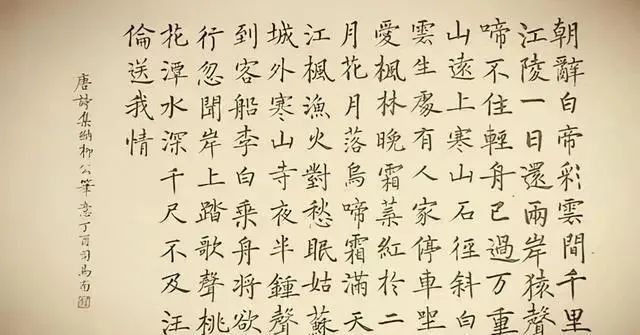 朝辭白帝彩雲間千里
江陵一日還兩岸猿聲
啼不住輕舟已過万重
山遠上寒山石徑斜白
雲生處有人家停車坐
愛楓林晚霜葉紅於二
月花月落烏啼霜滿天
江楓漁火對愁眠姑蘇
城外寒山寺夜半鍾聲
到客船李白乘舟將欲
行忽聞岸上踏歌聲桃
花潭水深千尺不及汪
倫送我情
唐詩集納柳公筆意丁酉司馬南